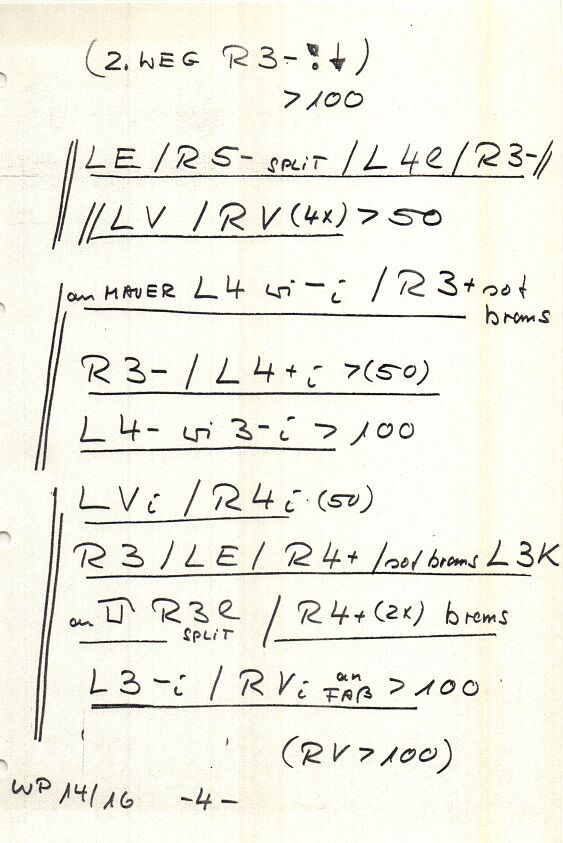 (2. WEG R3-!↓)
>100
LE/R5- SPLIT /L4l/R3-//
//LV /RV(4x) >50
an MAUER L4 wi-i /R3+ sot
brems
R3-/L4+i >(50)
L4- wi 3-i > 100
LVi /R4i (50)
R3/LE/R4+/sot brems L3K
an R3l /R4+(2x) brems
SPLIT
L3-i /RVi an FAß >100
(RV>100)
WP 14/16 -4-